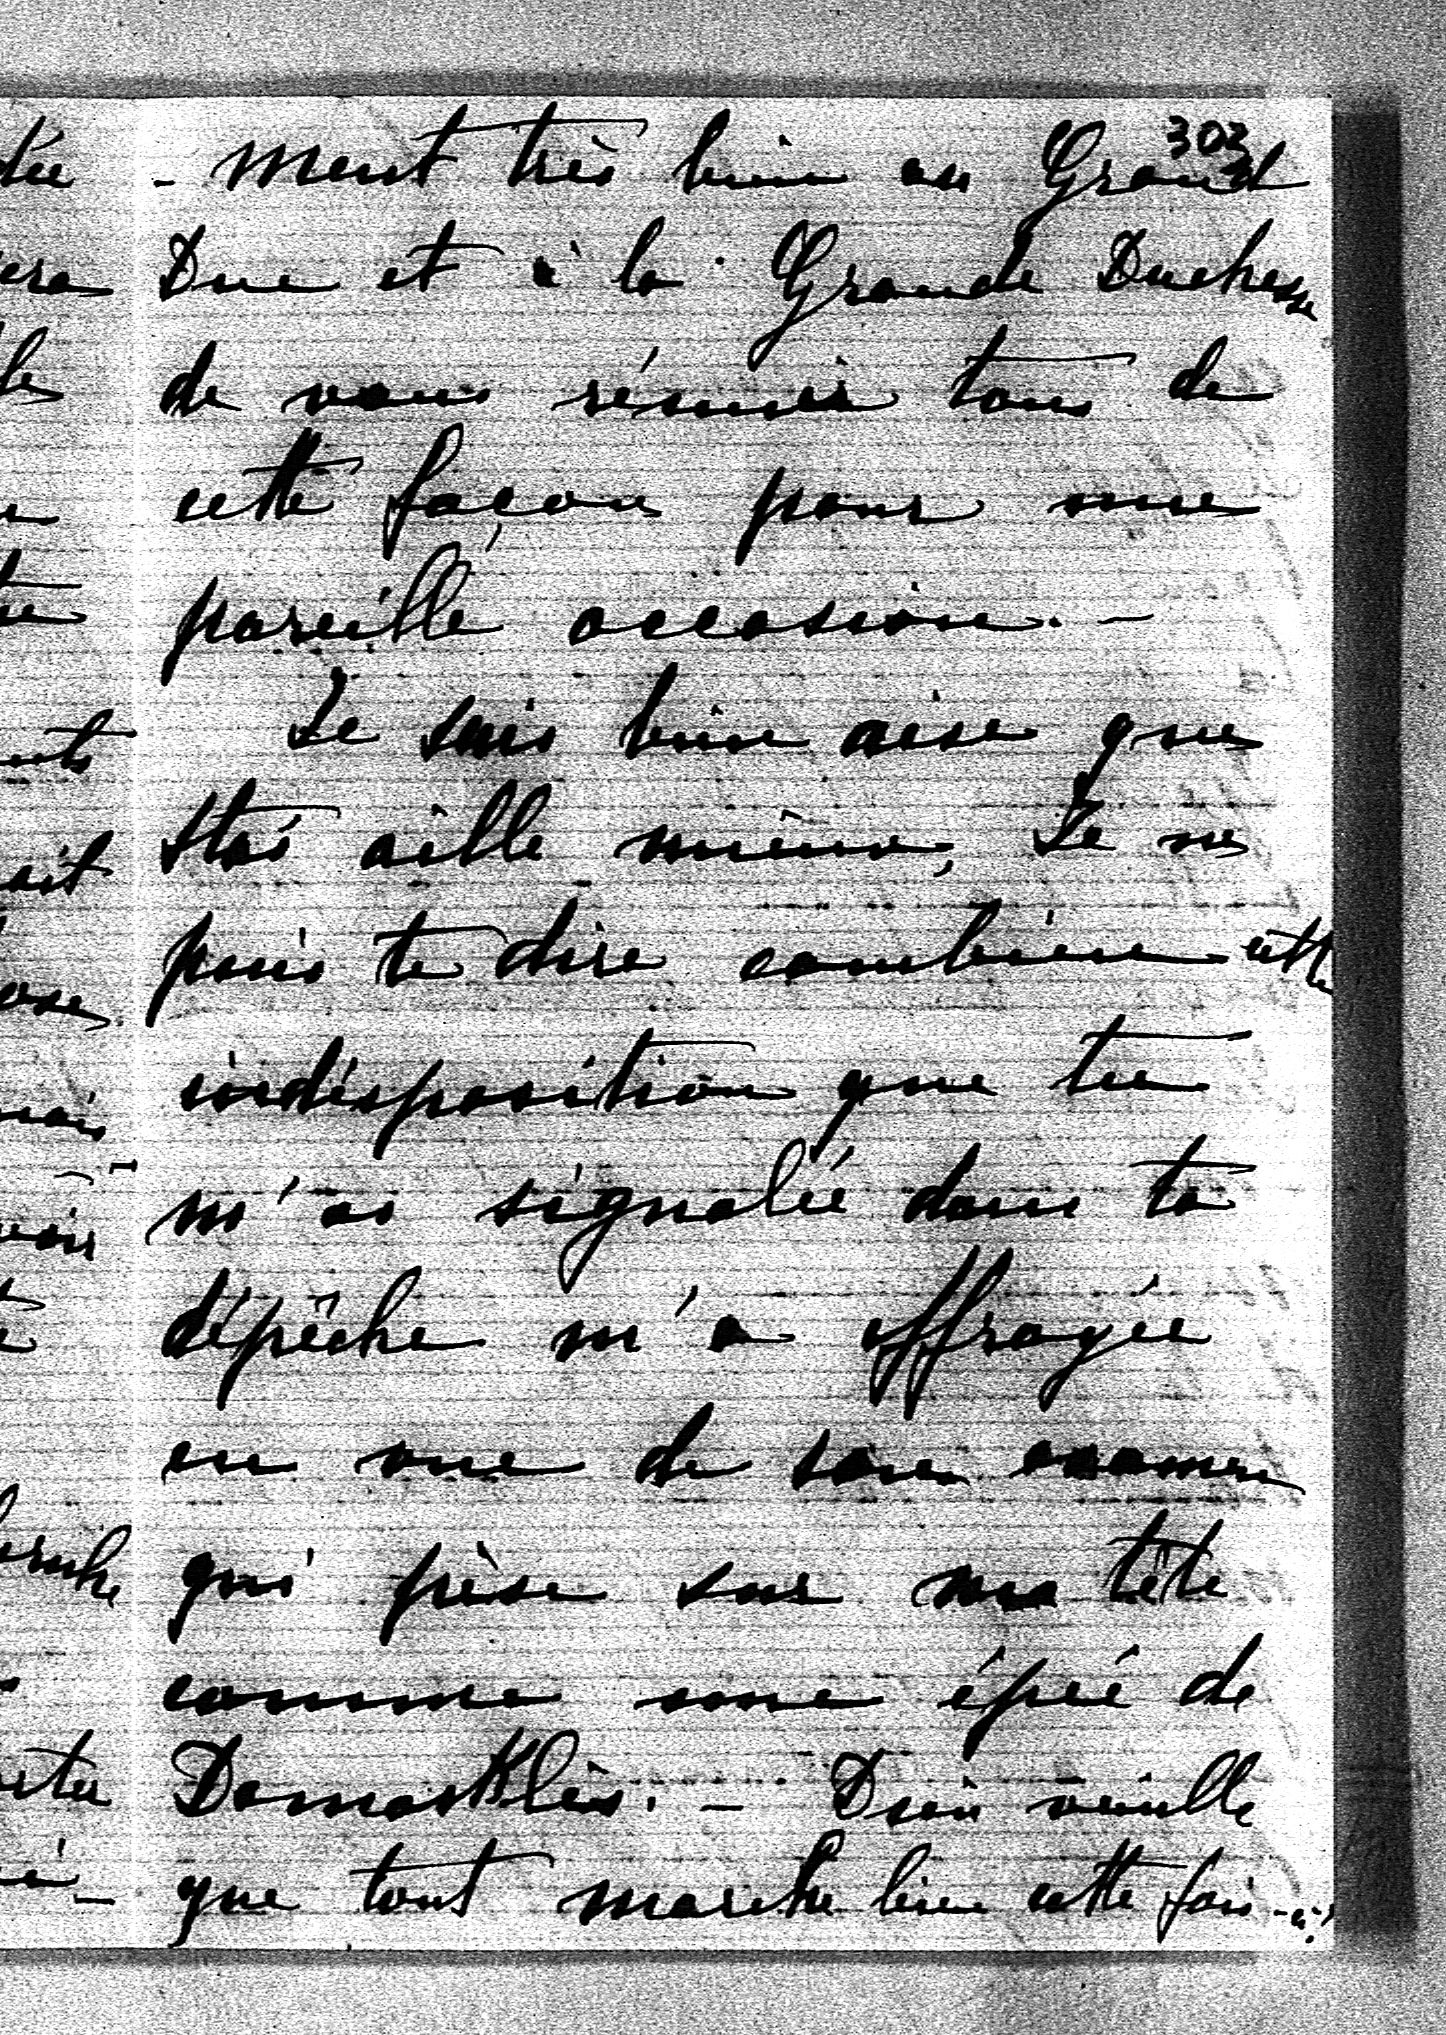 303
-ment très bien au Grand
Duc et à la Grande Duchesse
de vous réunir tous de
cette façon pour une
pareille occasion. —
Je suis bien aise que
Stas aille mieux, Je ne
puis te dire combien cette
indisposition que tu
m'as signalée dans ta
dépêche m'a effrayée
en vue de son examen
qui pèse sur ma tête
comme une épée de
Damoklès. — Dieu veuille
que tout marche bien cette fois-ci!